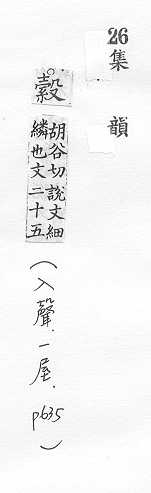 26集韻
縠
胡谷切說文細
縳也文二十五
(入聲.一屋.p635)